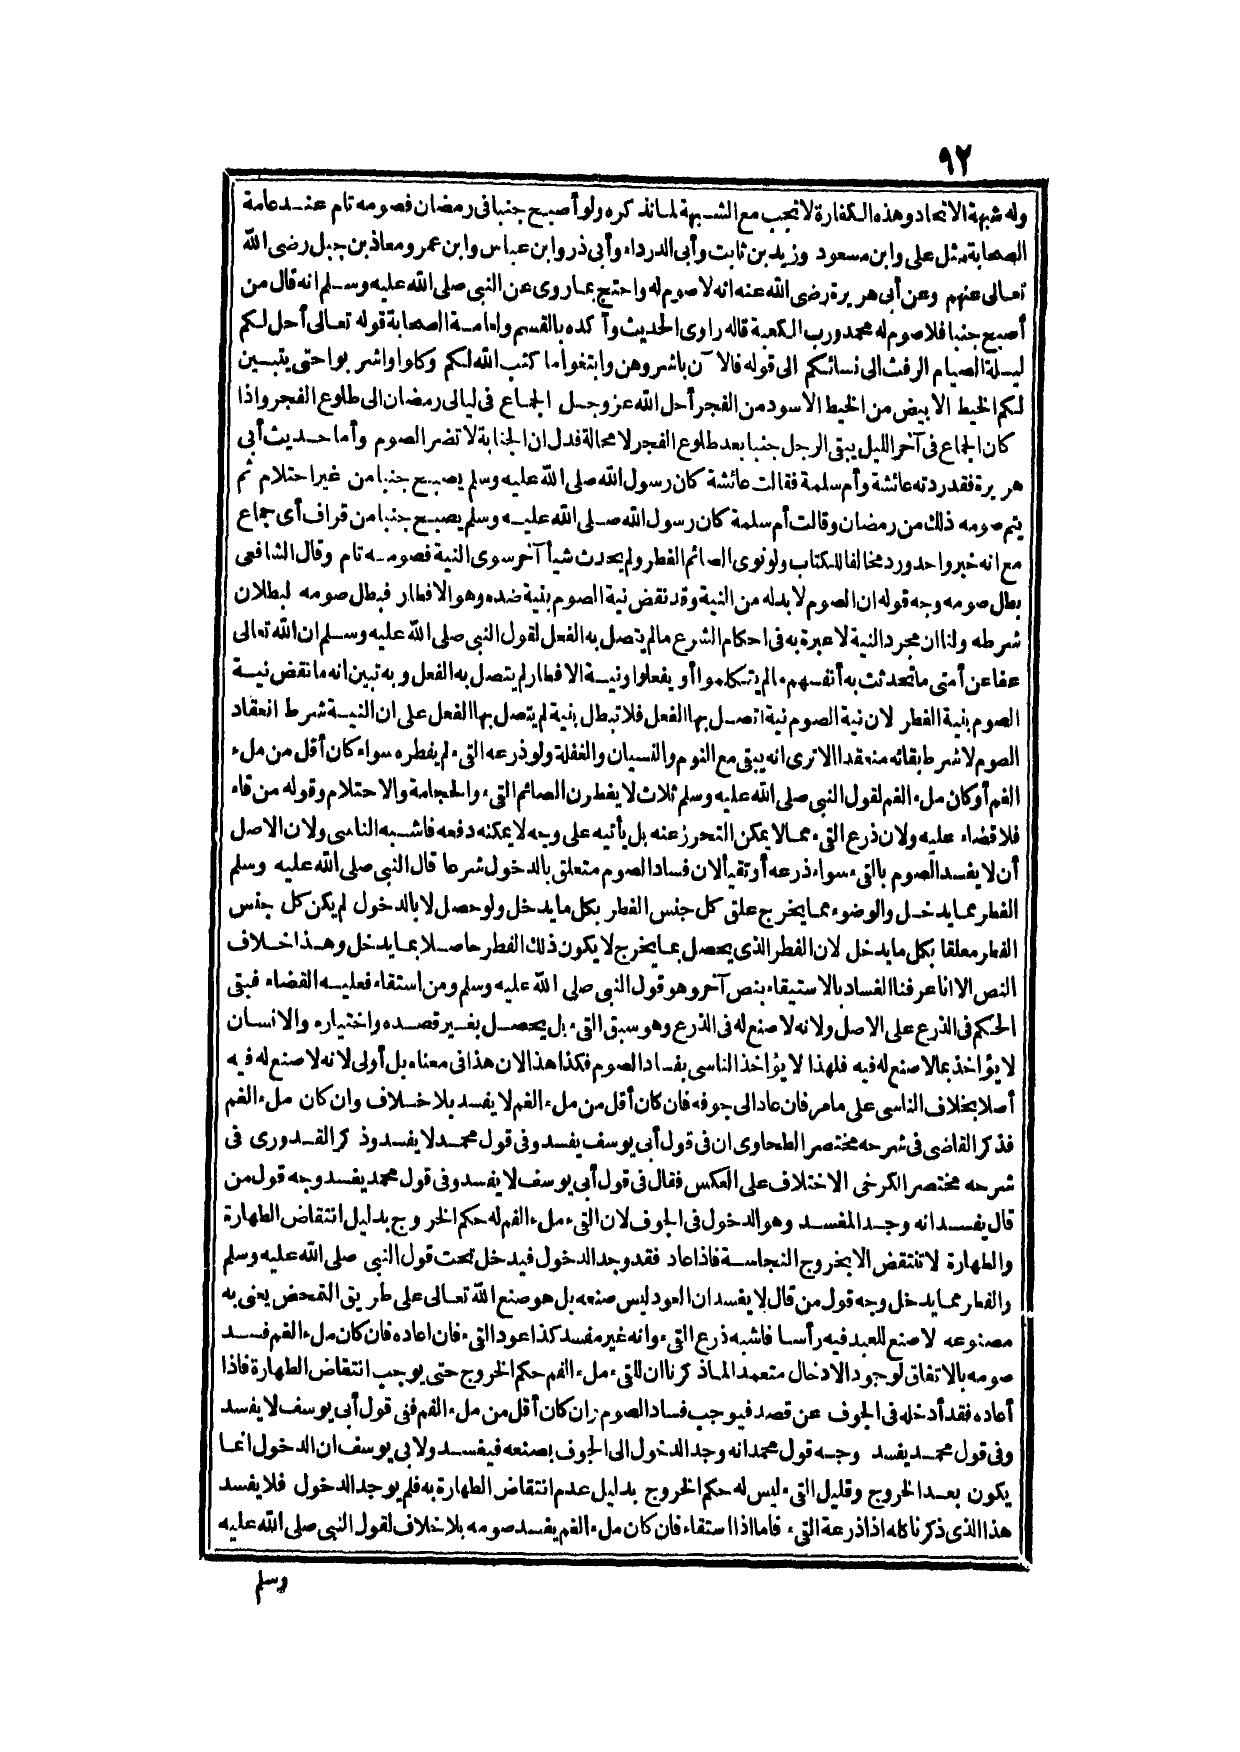 ٩٢
وله شبهة الاتحاد وهذه الكفارة لا تجب مع الشبهة لما نذكره ولو أصبح جنبا فى رمضان فصومه تام عند عامة
الصحابة مثل على وابن مسعود وزيد بن ثابت وأبى الدرداء وأبى ذر وابن عباس وابن عمر ومعاذ بن جبل رضى الله
تعالى عنهم وعن أبى هريرة رضى الله عنه انه لا صوم له واحتج بما روى عن النبى صلى الله عليه وسلم انه قال من
أصبح جنبا فلا صوم له محمد ورب الكعبة قاله راوى الحديث وأكده بالقسم ولعامة الصحابة قوله تعالى أحل لكم
ليلة الصيام الرفث الى نسائكم الى قوله فالآن باشروهن وابتغوا ما كتب الله لكم وكلوا واشربوا حتى يتبين
لكم الخيط الابيض من الخيط الاسود من الفجر أحل الله عز وجل الجماع فى ليالى رمضان الى طلوع الفجر واذا
كان الجماع فى آخر الليل يبقى الرجل جنبا بعد طلوع الفجر لا محالة فدل ان الجنابة لا تضر الصوم وأما حديث أبى
هريرة فقد ردته عائشة وأم سلمة فقالت عائشة كان رسول الله صلى الله عليه وسلم يصبح جنبا من غير احتلام ثم
يتم صومه ذلك من رمضان وقالت أم سلمة كان رسول الله صلى الله عليه وسلم يصبح جنبا من قراف أى جماع
مع انه خبر واحد ورد مخالفا للكتاب ولو نوى الصائم الفطر ولم يحدث شيأ آخر سوى النية فصومه تام وقال الشافعى
بطل صومه وجه قوله ان الصوم لا بد له من النية وقد نقض نية الصوم بنية ضده وهو الافطار فبطل صومه لبطلان
شرطه ولنا ان مجرد النية لا عبرة به فى احكام الشرع ما لم يتصل به الفعل لقول النبى صلى الله عليه وسلم ان الله تعالى
عفا عن أمتى ما تحدثت به أنفسهم ما لم يتكلموا أو يفعلوا ونية الافطار لم يتصل به الفعل وبه تبين انه ما نقض نية
الصوم بنية الفطر لان نية الصوم نية اتصل بها الفعل فلا تبطل بنية لم يتصل بها الفعل على ان النية شرط انعقاد
الصوم لا شرط بقائه منعقدا الا ترى انه يبقى مع النوم والنسيان والغفلة ولو ذرعه القىء لم يفطره سواء كان أقل من ملء
الفم أو كان ملء الفم لقول النبى صلى الله عليه وسلم ثلاث لا يفطرن الصائم القىء والحجامة والاحتلام وقوله من قاء
فلا قضاء عليه ولان ذرع القىء مما لا يمكن التحرز عنه بل يأتيه على وجه لا يمكنه دفعه فاشبه الناسى ولان الاصل
أن لا يفسد الصوم بالقىء سواء ذرعه أو تقيأ لان فساد الصوم متعلق بالدخول شرعا قال النبى صلى الله عليه وسلم
الفطر مما يدخل والوضوء مما يخرج علق كل جنس الفطر بكل ما يدخل ولو حصل لا بالدخول لم يكن كل جنس
الفطر معلقا بكل ما يدخل لان الفطر الذى يحصل بما يخرج لا يكون ذلك الفطر حاصلا بما يدخل وهذا خلاف
النص الا انا عرفنا الفساد بالاستيقاء بنص آخر وهو قول النبى صلى الله عليه وسلم ومن استقاء فعليه القضاء فبقى
الحكم فى الذرع على الاصل ولانه لا صنع له فى الذرع وهو سبق القىء بل يحصل بغير قصده واختياره والانسان
لا يؤاخذ بما لا صنع له فيه فلهذا لا يؤاخذ الناسى بفساد الصوم فكذا هذا لان هذا فى معناه بل أولى لانه لا صنع له فيه
أصلا بخلاف الناسى على ما مر فان عاد الى جوفه فان كان أقل من ملء الفم لا يفسد بلا خلاف وان كان ملء الفم
فذكر القاضى فى شرحه مختصر الطحاوى ان فى قول أبى يوسف يفسد وفى قول محمد لا يفسد وذكر القدورى فى
شرحه مختصر الكرخى الاختلاف على العكس فقال فى قول أبى يوسف لا يفسد وفى قول محمد يفسد وجه قول من
قال يفسد انه وجد المفسد وهو الدخول فى الجوف لان القىء ملء الفم له حكم الخروج بدليل انتقاض الطهارة
والطهارة لا تنتقض الا بخروج النجاسة فاذا عاد فقد وجد الدخول فيدخل تحت قول النبى صلى الله عليه وسلم
والفطر مما يدخل وجه قول من قال لا يفسد ان العود ليس صنعه بل هو صنع الله تعالى على طريق التمحض يعنى به
مصنوعه لا صنع للعبد فيه رأسا فاشبه ذرع القىء وانه غير مفسد كذا عود القىء فان اعاده فان كان ملء الفم فسد
صومه بالاتفاق لوجود الادخال متعمدا لما ذكرنا ان للقىء ملء الفم حكم الخروج حتى يوجب انتقاض الطهارة فاذا
أعاده فقد أدخله فى الجوف عن قصد فيوجب فساد الصوم وان كان أقل من ملء الفم ففى قول أبى يوسف لا يفسد
وفى قول محمد يفسد وجه قول محمد انه وجد الدخول الى الجوف بصنعه فيفسد ولابى يوسف ان الدخول انما
يكون بعد الخروج وقليل القىء ليس له حكم الخروج بدليل عدم انتقاض الطهارة به فلم يوجد الدخول فلا يفسد
هذا الذى ذكرنا كله اذا ذرعة القىء فاما اذا استقاء فان كان ملء الفم يفسد صومه بلا خلاف لقول النبى صلى الله عليه
وسلم